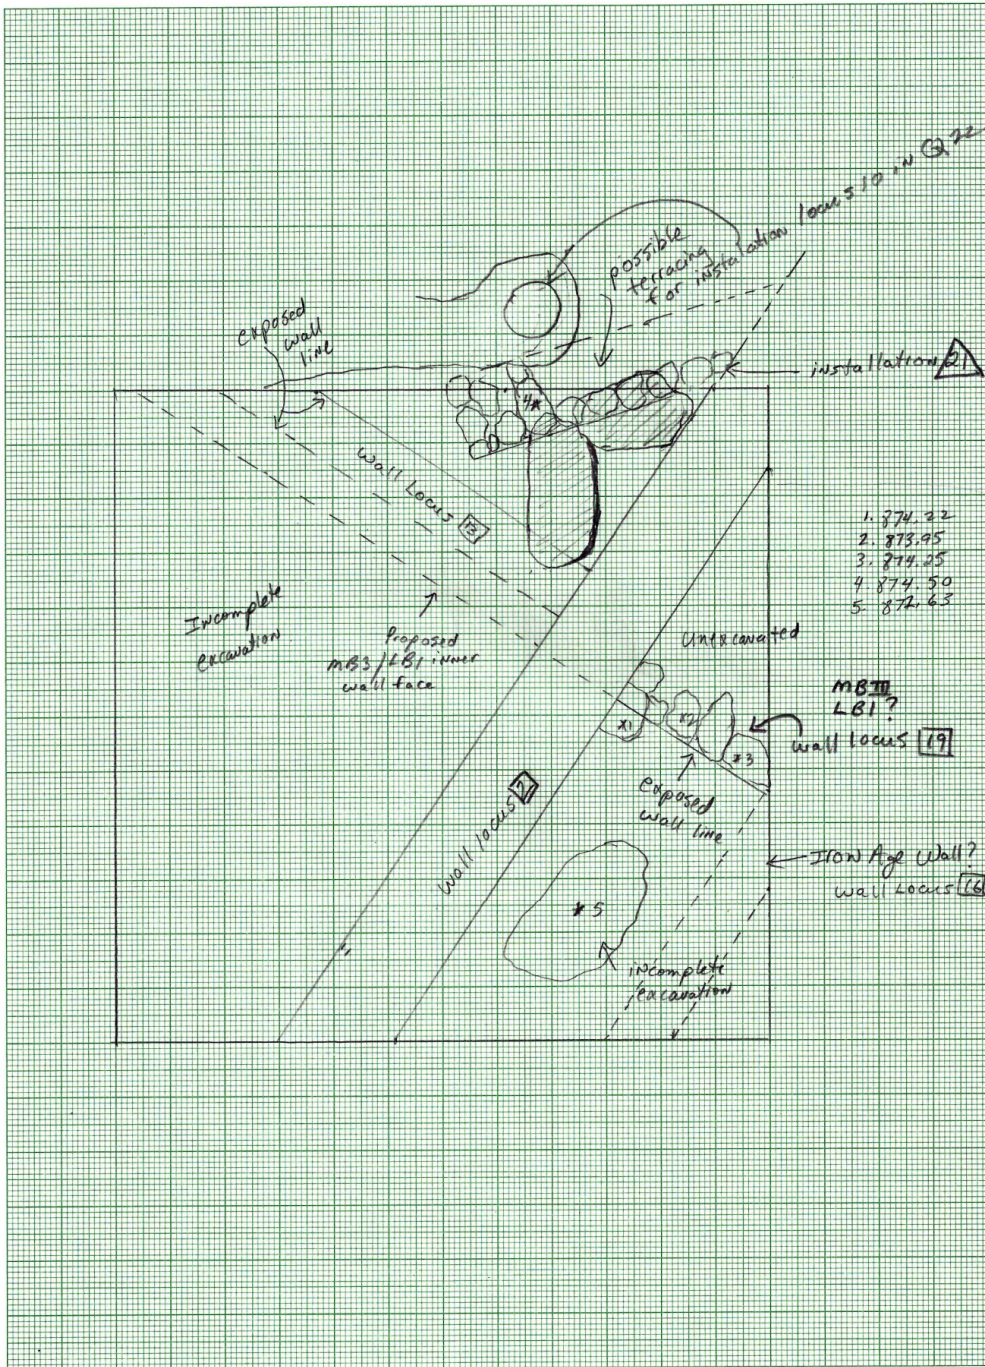 possible
terracing
for instalation locus 10 in Q22
exposed
wall
line
installation 21
4*
Wall Locus 13
1. 874.22
2. 873.95
3. 874.25
4 874.50
5. 872.63
Incomplete
excavation
Proposed
MB3/LB1 inner
wall face
Unexcavated
MBIII
LB1?
Wall locus 19
x1
x2
*3
exposed
wall line
Wall locus 2
Iron Age Wall?
Wall Locus 16
*5
incomplete
excavation